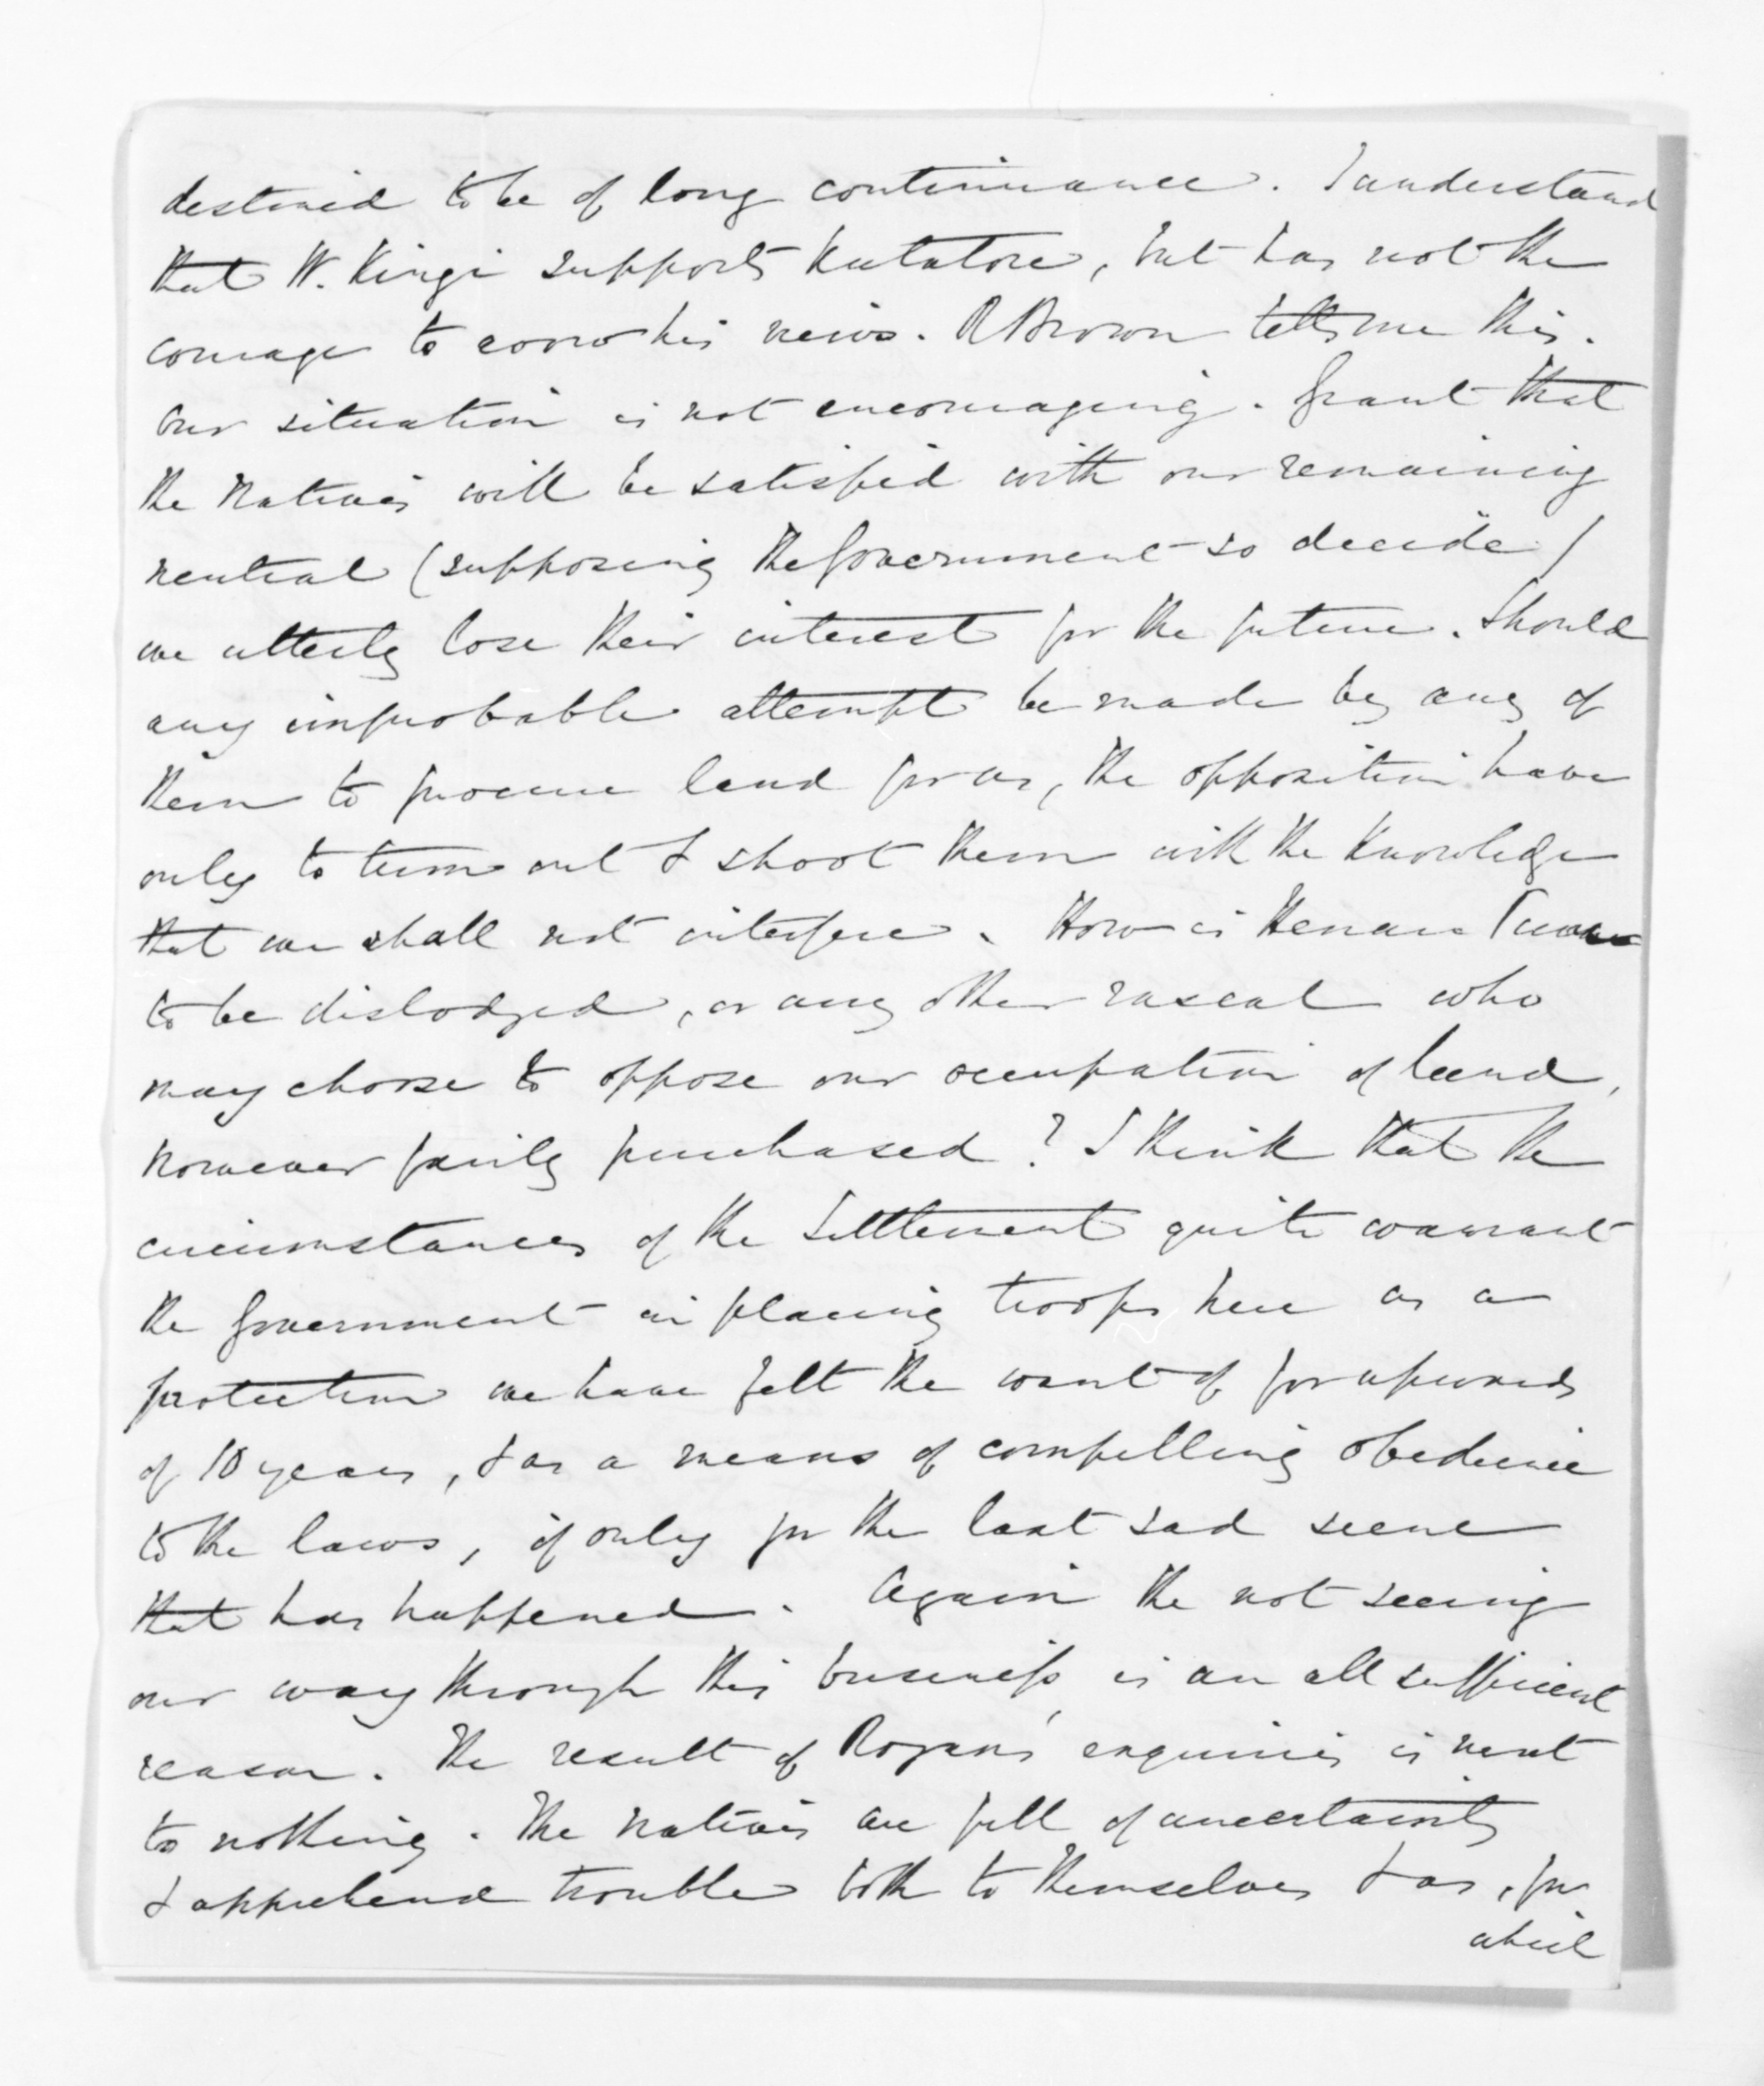 destined to be of long continuance. I understand
that W. Kingi supports Katatore, but has not the
courage to avow his views. R Brown tells me this.
Our situation is not encouraging. Grant that
the Natives will be satisfied with our remaining
neutral (supposing the Government so decide)
we utterly lose their interest for the future. Should
any improbable attempt be made by any of
them to procure land for us, the opposition have
only to turn out & shoot them with the knowledge
that we shall not interfere. How is
to be dislodged, or any other rascal who
may choose to oppose our occupation of land,
however fairly purchased? I think that the
circumstances of the Settlement quite warrant
the Government in placing troops here as a
protection we have felt the want of for upwards
of 10 years, & as a means of compelling obedience
to the laws, if only for the last sad scene
that has happened. Again the not seeing
our way through this business, is an all sufficient
reason. The result of Rogan's enquiries is next
to nothing. The Natives are full of uncertainty
& apprehend trouble both to themselves & us, for
which